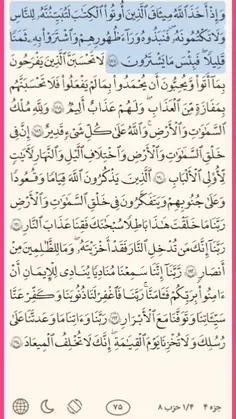 وَإِذْ أَخَذَ ٱللَّهُ مِيثَٰقَ ٱلَّذِينَ أُوتُوا۟ ٱلْكِتَٰبَ لَتُبَيِّنُنَّهُۥ لِلنَّاسِ
وَلَا تَكْتُمُونَهُۥ فَنَبَذُوهُ وَرَآءَ ظُهُورِهِمْ وَٱشْتَرَوْا۟ بِهِۦ ثَمَنًا
قَلِيلًا ۖ فَبِئْسَ مَا يَشْتَرُونَ ﴿١٨٧﴾ لَا تَحْسَبَنَّ ٱلَّذِينَ يَفْرَحُونَ
بِمَآ أَتَوا۟ وَّيُحِبُّونَ أَن يُحْمَدُوا۟ بِمَا لَمْ يَفْعَلُوا۟ فَلَا تَحْسَبَنَّهُم
بِمَفَازَةٍ مِّنَ ٱلْعَذَابِ ۖ وَلَهُمْ عَذَابٌ أَلِيمٌ ﴿١٨٨﴾ وَلِلَّهِ مُلْكُ
ٱلسَّمَٰوَٰتِ وَٱلْأَرْضِ ۗ وَٱللَّهُ عَلَىٰ كُلِّ شَىْءٍ قَدِيرٌ ﴿١٨٩﴾ إِنَّ فِى
خَلْقِ ٱلسَّمَٰوَٰتِ وَٱلْأَرْضِ وَٱخْتِلَٰفِ ٱلَّيْلِ وَٱلنَّهَارِ لَـَٔايَٰتٍ
لِّأُو۟لِى ٱلْأَلْبَٰبِ ﴿١٩٠﴾ ٱلَّذِينَ يَذْكُرُونَ ٱللَّهَ قِيَٰمًا وَقُعُودًا
وَعَلَىٰ جُنُوبِهِمْ وَيَتَفَكَّرُونَ فِى خَلْقِ ٱلسَّمَٰوَٰتِ وَٱلْأَرْضِ
رَبَّنَا مَا خَلَقْتَ هَٰذَا بَٰطِلًا سُبْحَٰنَكَ فَقِنَا عَذَابَ ٱلنَّارِ ﴿١٩١﴾
رَبَّنَآ إِنَّكَ مَن تُدْخِلِ ٱلنَّارَ فَقَدْ أَخْزَيْتَهُۥ ۖ وَمَا لِلظَّٰلِمِينَ مِنْ
أَنصَارٍ ﴿١٩٢﴾ رَّبَّنَآ إِنَّنَا سَمِعْنَا مُنَادِيًا يُنَادِى لِلْإِيمَٰنِ أَنْ
ءَامِنُوا۟ بِرَبِّكُمْ فَـَٔامَنَّا ۚ رَبَّنَا فَٱغْفِرْ لَنَا ذُنُوبَنَا وَكَفِّرْ عَنَّا
سَيِّـَٔاتِنَا وَتَوَفَّنَا مَعَ ٱلْأَبْرَارِ ﴿١٩٣﴾ رَبَّنَا وَءَاتِنَا مَا وَعَدتَّنَا عَلَىٰ
رُسُلِكَ وَلَا تُخْزِنَا يَوْمَ ٱلْقِيَٰمَةِ ۗ إِنَّكَ لَا تُخْلِفُ ٱلْمِيعَادَ ﴿١٩٤﴾
جزء ۴ ۱/۴ حزب ۸
۷۵